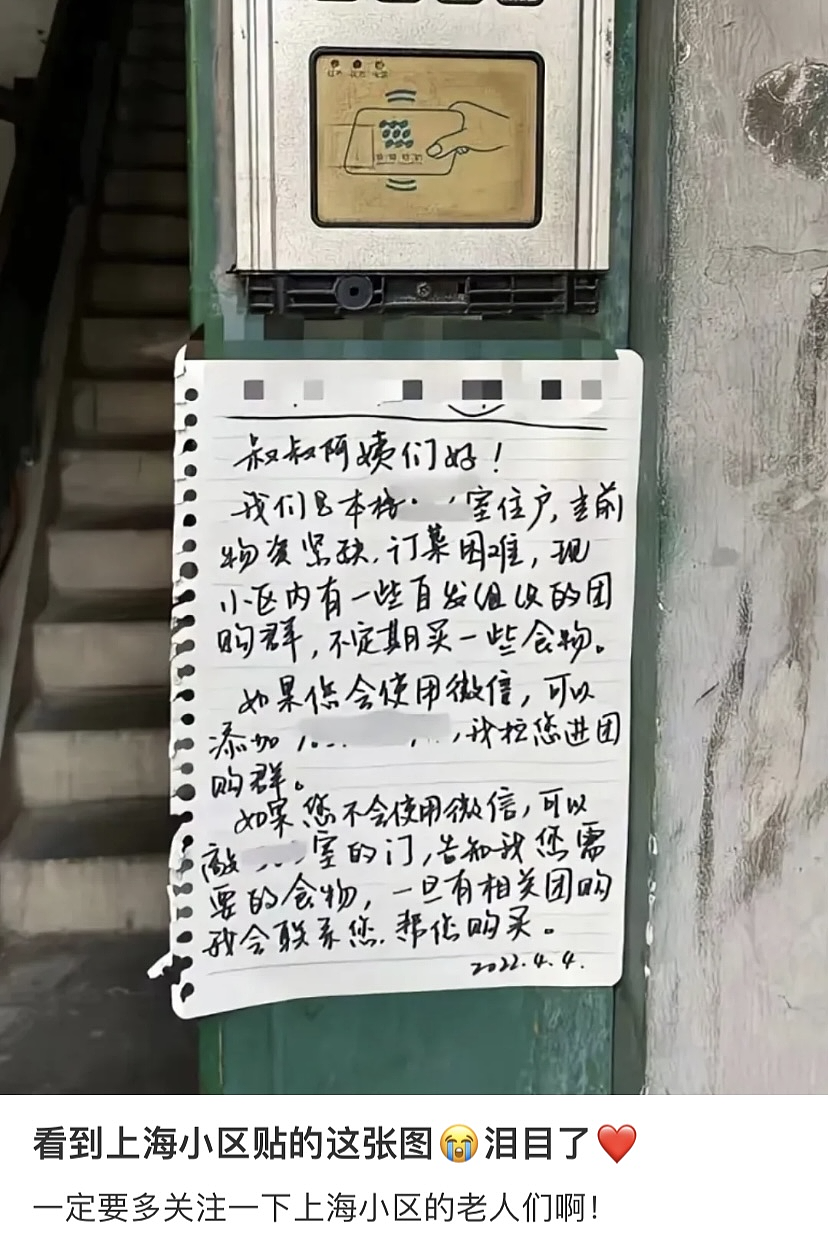 叔叔阿姨们好！
我们是本楼 室住户，当前
物资紧缺，订菜困难，现
小区内有一些自发组织的团
购群，不定期买一些食物。
如果您会使用微信，可以
添加 ，我拉您进团
购群。
如果您不会使用微信，可以
敲 室的门，告知我您需
要的食物，一旦有相关团购
我会联系您，帮您购买。
2022.4.4.
看到上海小区贴的这张图😭泪目了❤️
一定要多关注一下上海小区的老人们啊！